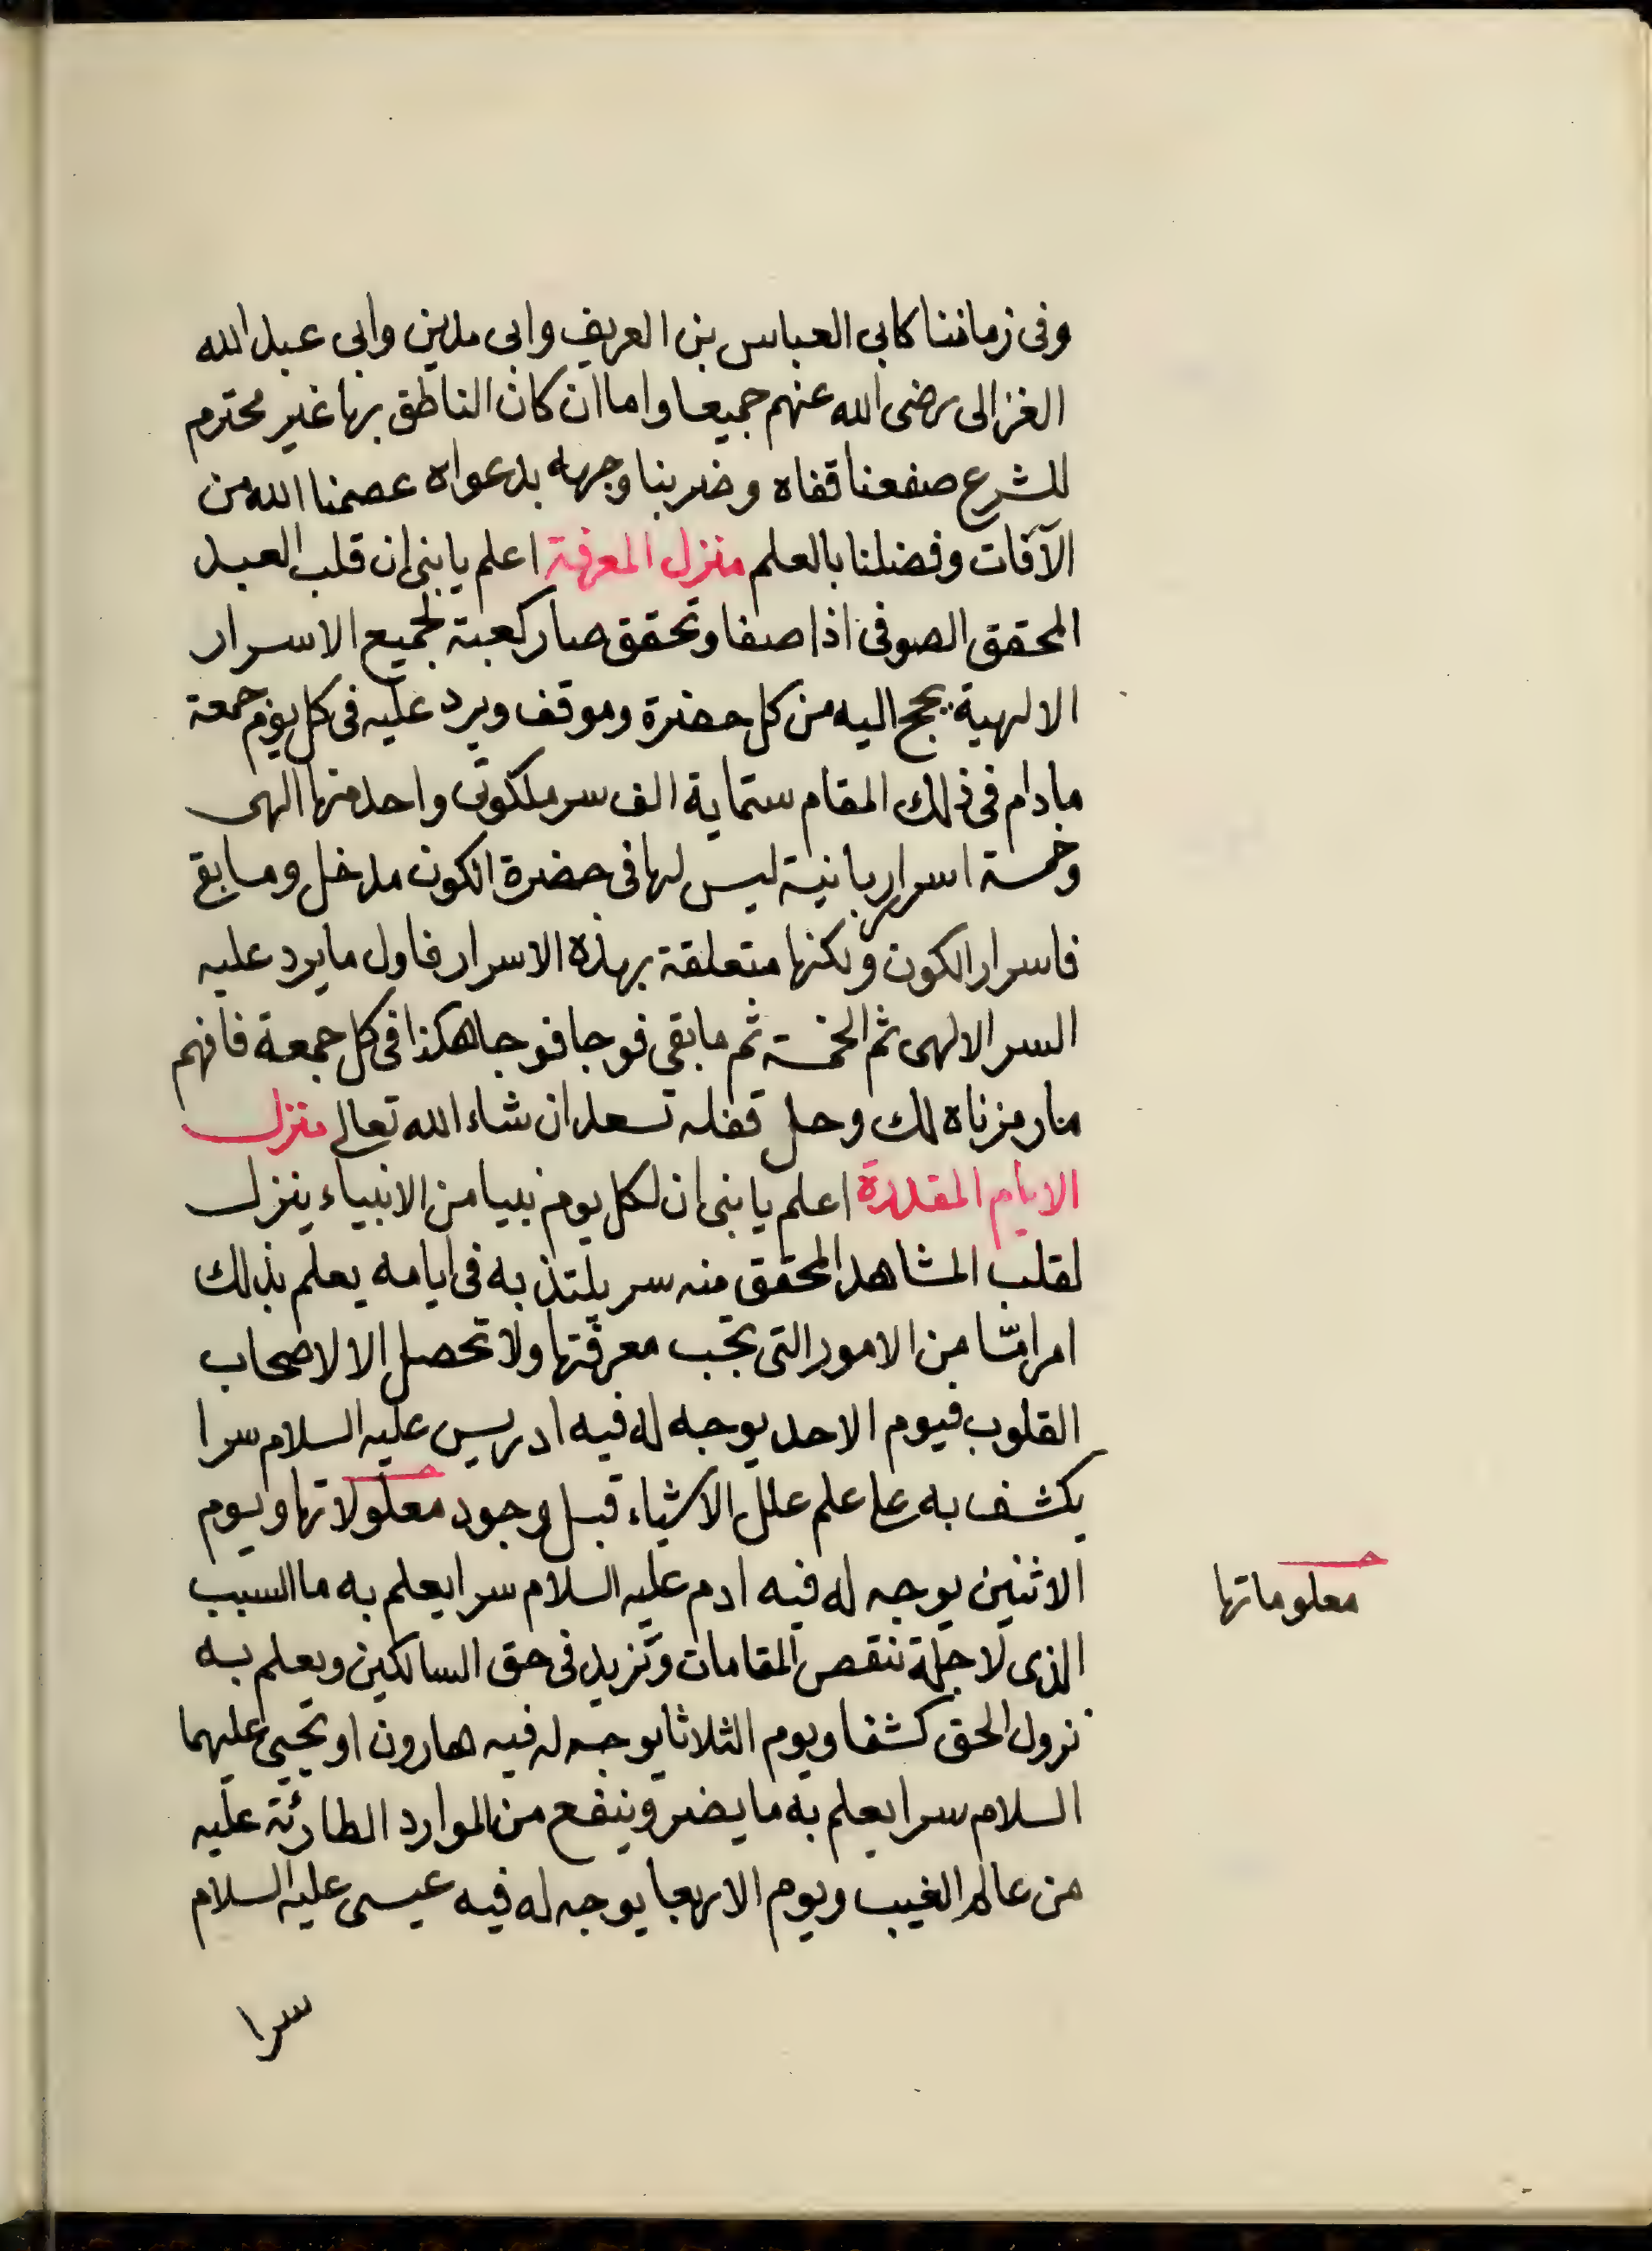 وفى زماننا كابى العباس بن العريف وابى مدين وابى عبد الله
الغزالى رضى الله عنهم جميعا واما ان كان الناطق بها غير محترم
للشرع صفعنا قفاه وضربنا وجهه بدعواه عصمنا الله من
الآفات وفضلنا بالعلم منزل المعرفة اعلم يا بنى ان قلب العبد
المحقق الصوفى اذا صفا وتحقق صار كعبة لجميع الاسرار
الالهية يحج اليه من كل حضرة وموقف ويرد عليه فى كل يوم جمعة
ما دام فى ذلك المقام ستماية الف سر ملكوتى واحد منها الهى
وخمسة اسرار ربانية ليس لها فى حضرة الكون مدخل وما بقى
فاسرار الكون ولكنها متعلقة بهذه الاسرار فاول ما يرد عليه
السر الالهى ثم الخمسة ثم ما بقى فوجا فوجا هكذا فى كل جمعة فافهم
ما رمزناه لك وحل قفله تسعد ان شاء الله تعالى منزل
الايام المقدرة اعلم يا بنى ان لكل يوم نبيا من الانبياء ينزل
لقلب المشاهد المحقق منه سر يلتذ به فى ايامه يعلم بذلك
امرا مّا من الامور التى تجب معرفتها ولا تحصل الا لاصحاب
القلوب فيوم الاحد يوجه له فيه ادريس عليه السلام سرا
يكشف به على علم علل الاشياء قبل وجود معلولاتها ويوم
الاثنين يوجه له فيه ادم عليه السلام سرا يعلم به ما السبب
الذى لاجله تنقص المقامات وتزيد فى حق السالكين ويعلم به
نزول الحق كشفا ويوم الثلاثا يوجه له فيه هارون او يحيى عليهما
السلام سرا يعلم به ما يضر وينفع من الموارد الطارئة عليه
من عالم الغيب ويوم الاربعا يوجه له فيه عيسى عليه السلام
سرا
معلوماتها